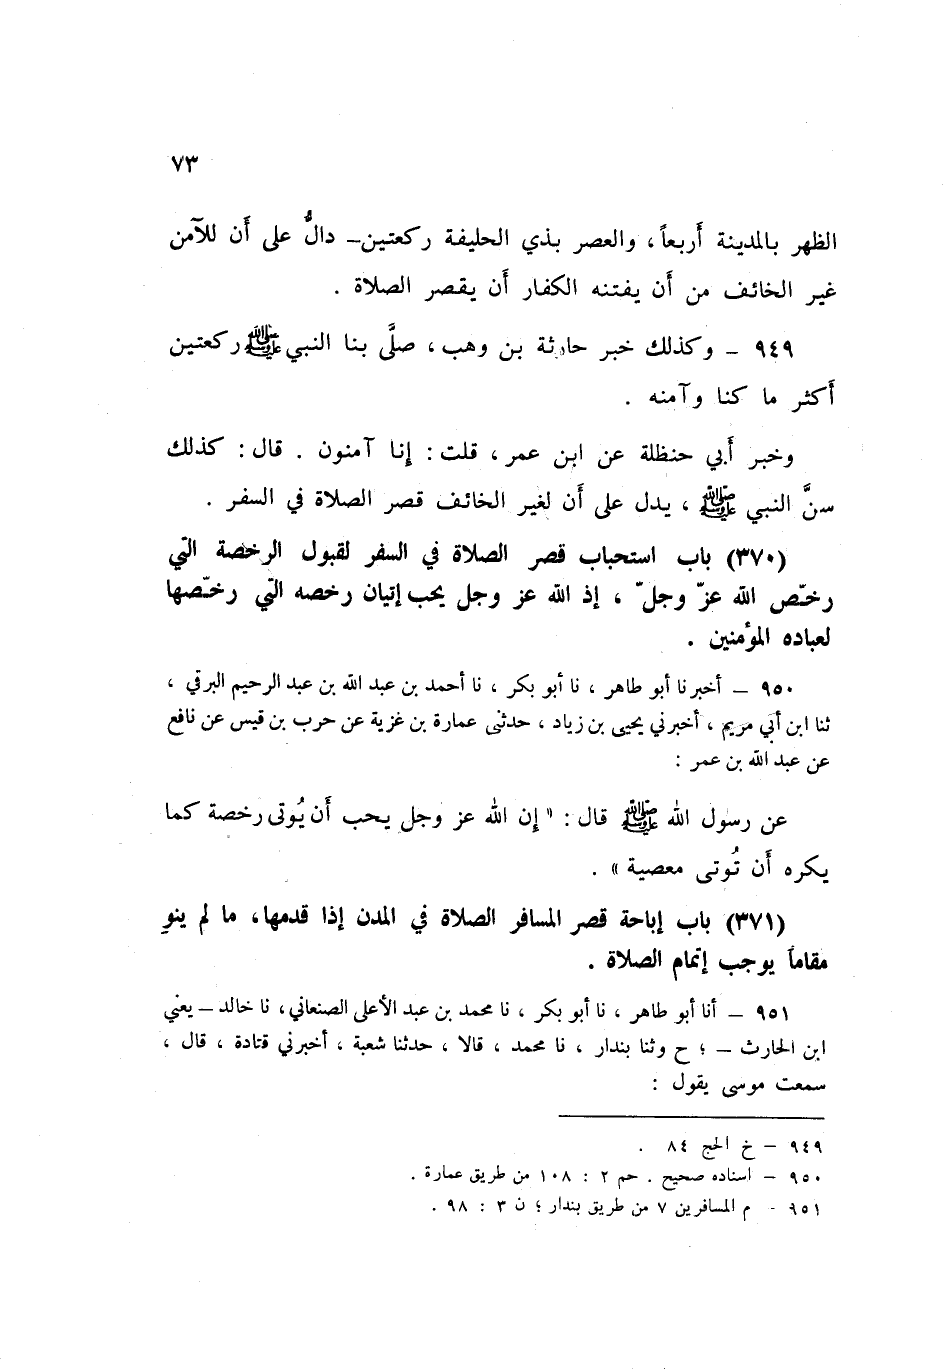 ٧٣
الظهر بالمدينة أَربعاً، والعصر بذي الحليفة ركعتين– دالٌّ على أَن للآمن
غير الخائف من أَن يفتنه الكفار أَن يقصر الصلاة .
٩٤٩ – وكذلك خبر حارثة بن وهب، صلَّى بنا النبي ﷺ ركعتين
أَكثر ما كنا وآمنه .
وخبر أَبي حنظلة عن ابن عمر، قلت: إِنا آمنون . قال: كذلك
سنَّ النبي ﷺ ، يدل على أَن لغير الخائف قصر الصلاة في السفر .
(٣٧٠) باب استحباب قصر الصلاة في السفر لقبول الرخصة التي
رخّص الله عزّ وجلّ ، إذ الله عز وجل يحب إتيان رخصه التي رخّصها
لعباده المؤمنين .
٩٥٠ – أخبرنا أبو طاهر ، نا أبو بكر ، نا أحمد بن عبد الله بن عبد الرحيم البرقي ،
ثنا ابن أبي مريم ، أخبرني يحيى بن زياد ، حدثنى عمارة بن غزية عن حرب بن قيس عن نافع
عن عبد الله بن عمر :
عن رسول الله ﷺ قال: « إِن الله عز وجل يحب أَن يُوتى رخصة كما
يكره أَن تُوتى معصية » .
(٣٧١) باب إباحة قصر المسافر الصلاة في المدن إذا قدمها، ما لم ينوِ
مقاماً يوجب إتمام الصلاة .
٩٥١ – أنا أبو طاهر ، نا أبو بكر ، نا محمد بن عبد الأعلى الصنعاني، نا خالد – يعني
ابن الحارث – ؛ ح وثنا بندار ، نا محمد ، قالا ، حدثنا شعبة ، أخبرني قتادة ، قال ،
سمعت موسى يقول :
٩٤٩ – خ الحج ٨٤ .
٩٥٠ – اسناده صحيح . حم ٢ : ١٠٨ من طريق عمارة .
٩٥١ - م المسافرين ٧ من طريق بندار ؛ ن ٣ : ٩٨ .